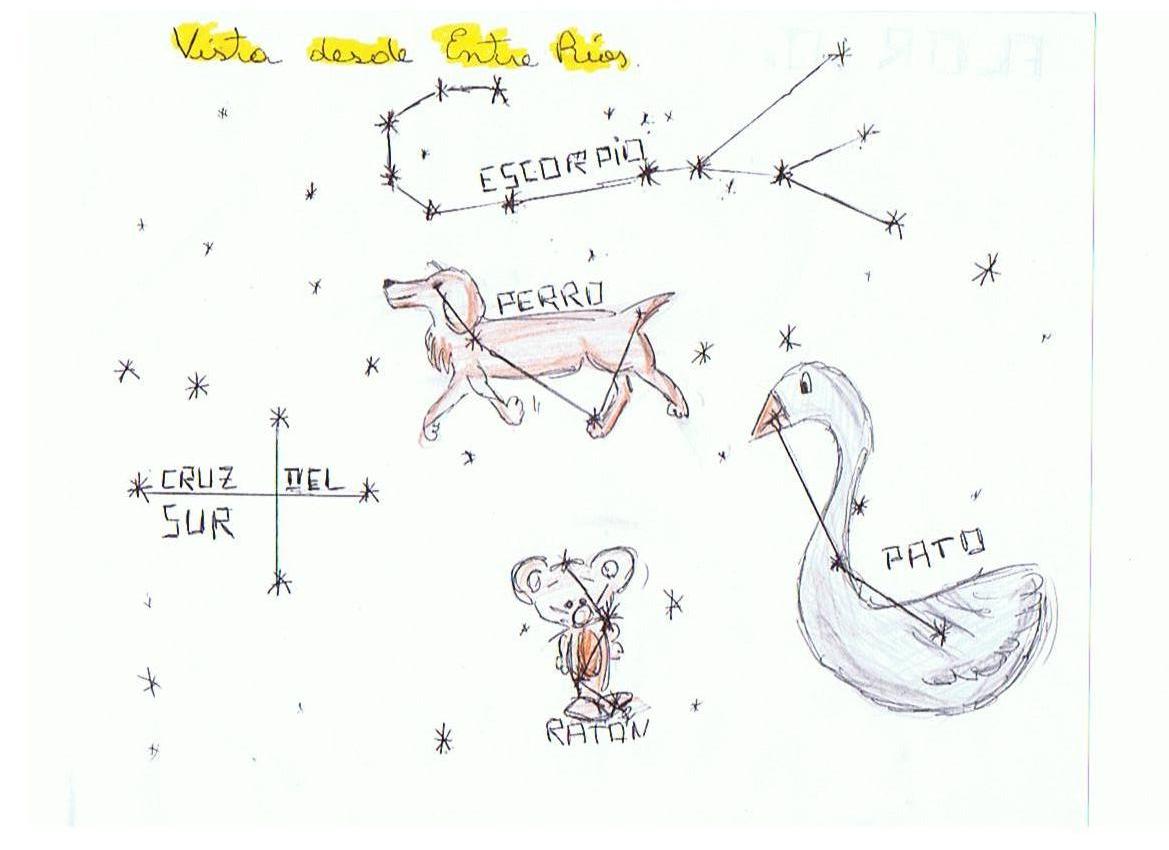 Vista desde Entre Ríos.
ESCORPIO
PERRO
CRUZ DEL
SUR
PATO
RATÓN